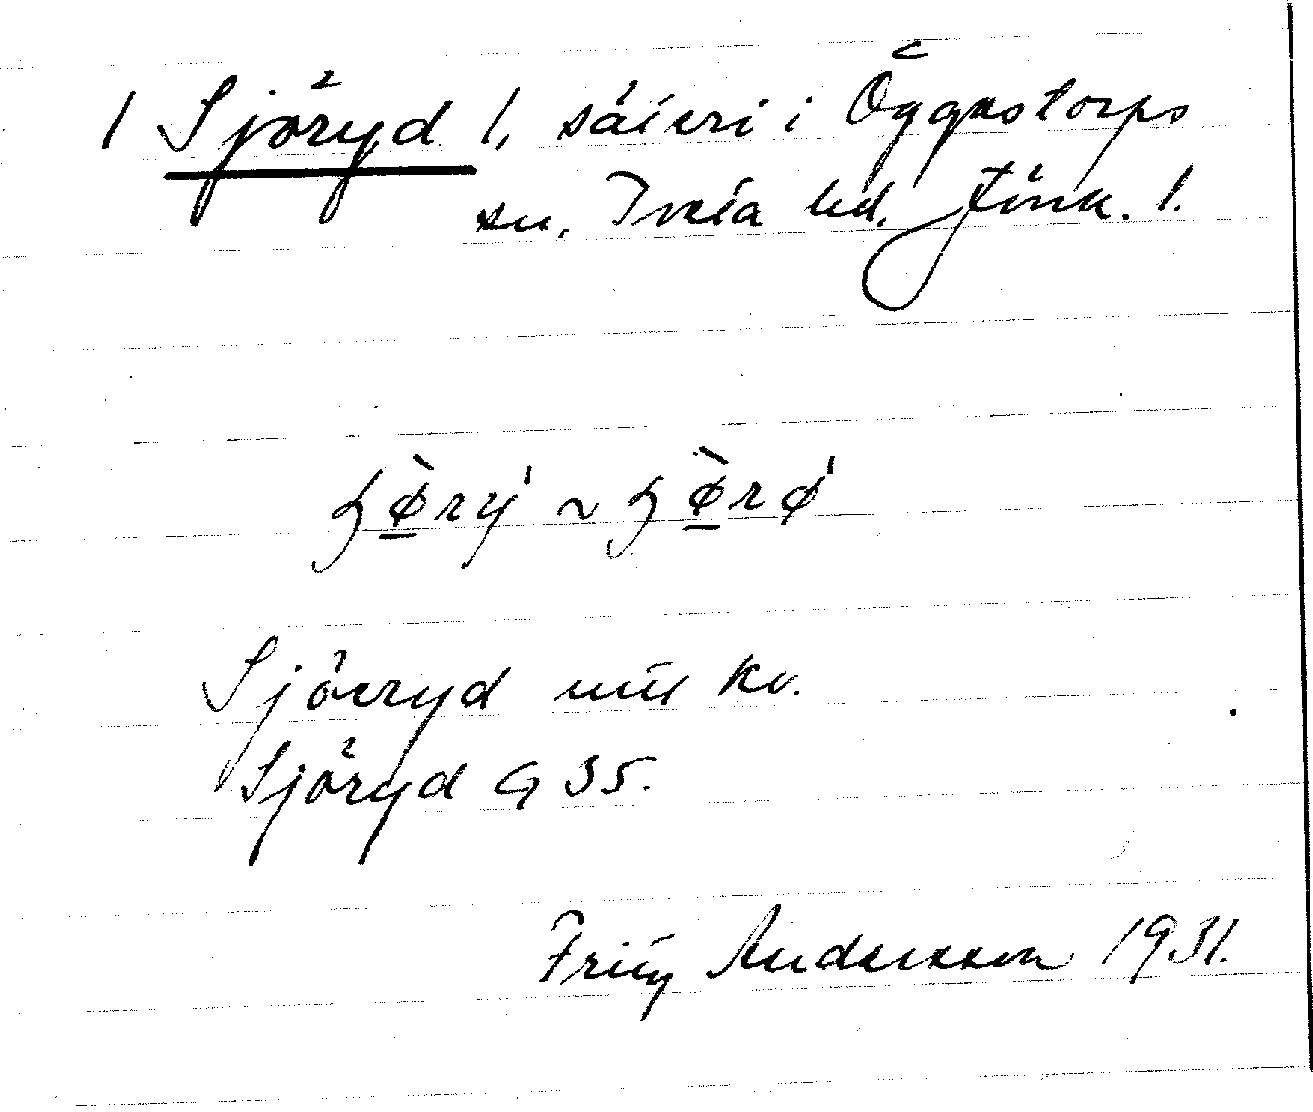 1 Sjöryd 1, säteri i Öggestorps
sn. Tveta hd. Jönk. l.
ɧø̀rẏ ~ ɧø̀rø̍
Sjöeryd mtl kv.
Sjöryd G 35.
Fritz Andersson 1931.